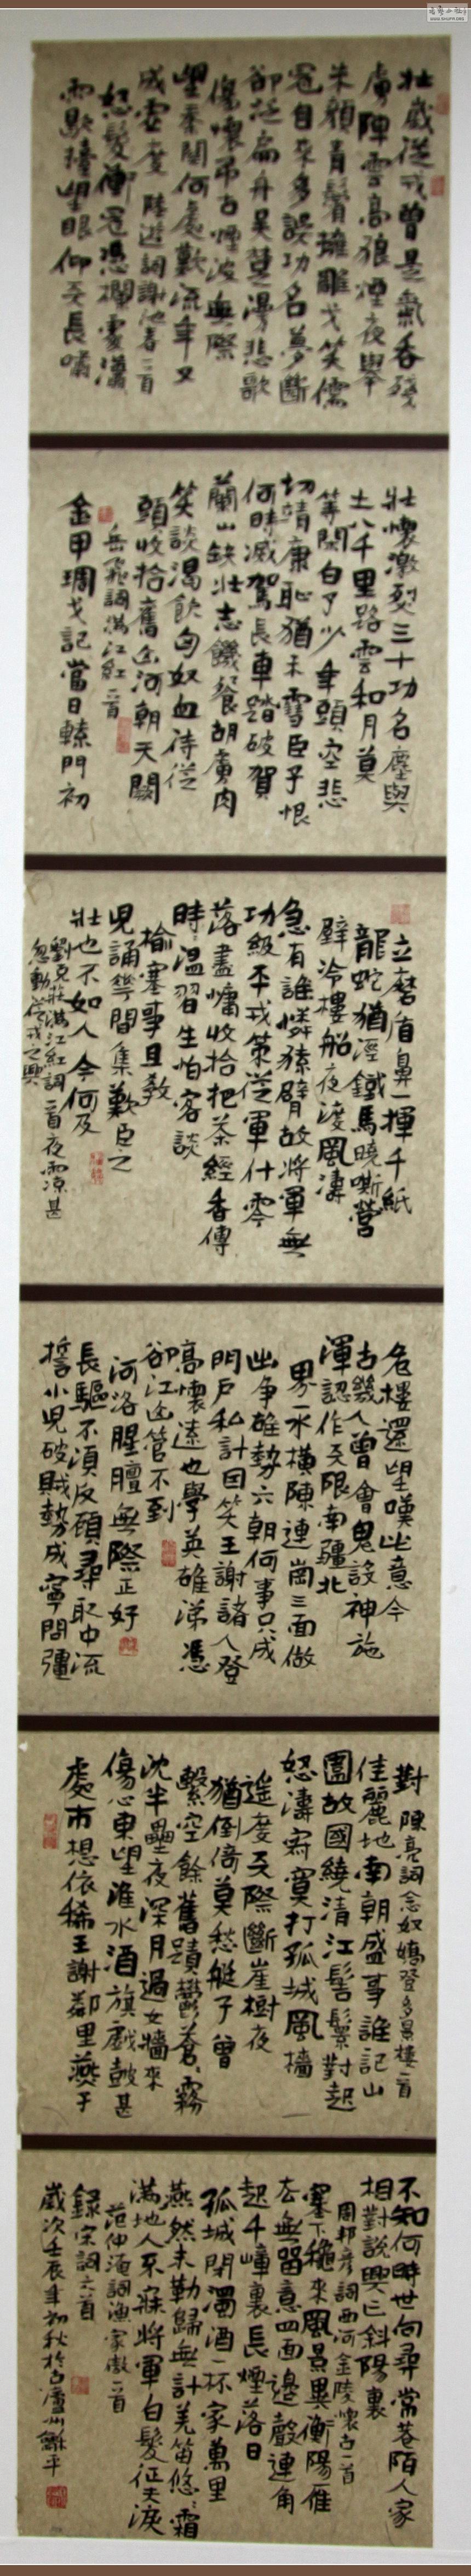 壮歲從戎曾是氣吞殘
虜陣雲高狼煙夜舉
朱顏青鬢擁雕戈笑儒
冠自來多誤功名夢斷
卻泛扁舟吳楚漫悲歌
傷懷弔古煙波無際
望秦關何處歎流年又
成虛度 陸遊詞謝池春一首
怒髮衝冠憑欄處瀟
雨歇擡望眼仰天長嘯
壯懷激烈三十功名塵與
土八千里路雲和月莫
等閑白了少年頭空悲
切靖康恥猶未雪臣子恨
何時滅駕長車踏破賀
蘭山缺壯志饑餐胡虜肉
笑談渴飲匈奴血待從
頭收拾舊山河朝天闕
岳飛詞滿江紅一首
金甲琱戈記當日轅門初
立磨盾鼻一揮千紙
龍蛇猶溼鐵馬曉嘶營
壁冷樓船夜渡風濤
急有誰憐猿臂故將軍無
功級平戎策從軍什零
落盡慵收拾把茶經香傳
時溫習生怕客談
榆塞事且教
兒誦花間集歎臣之
壯也不如人今何及
劉克莊滿江紅詞一首夜雨涼甚
忽動從戎之興
危樓還望嘆此意今
古幾人曾會鬼設神施
渾認作天限南疆北
界一水橫陳連崗三面做
出爭雄勢六朝何事只成
門戶私計因笑王謝諸人登
高懷遠也學英雄涕憑
卻江山管不到
河洛腥膻無際正好
長驅不須反顧尋取中流
誓小兒破賊勢成寧問彊
對 陳亮詞念奴嬌登多景樓一首
佳麗地南朝盛事誰記山
圍故國繞清江髻鬟對起
怒濤寂寞打孤城風檣
遙度天際斷崖樹夜
猶倒倚莫愁艇子曾
繫空餘舊蹟鬱蒼蒼霧
沈半壘夜深月過女牆來
傷心東望淮水酒旗戲鼓甚
處市想依稀王謝鄰里燕子
不知何時世向尋常巷陌人家
相對說興亡斜陽裏
周邦彥詞西河金陵懷古一首
塞下秋來風景異衡陽雁
去無留意四面邊聲連角
起千嶂裏長煙落日
孤城閉濁酒一杯家萬里
燕然未勒歸無計羌笛悠悠霜
滿地人不寐將軍白髮征夫淚
范仲淹詞漁家傲一首
錄宋詞六首
歲次壬辰年初秋於古瀘州 平